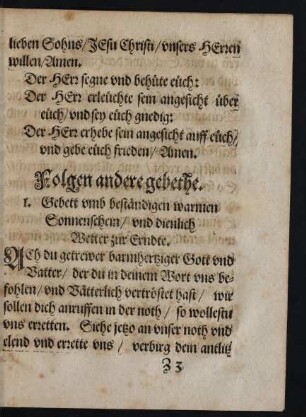 lieben Sohns/ JEsu Christi/ vnsers HErren
willen/ Amen.
Der HErr segne vnd behüte eüch:
Der HErr erleuchte sein angesicht über
eüch/ vnd sey eüch gnedig:
Der HErr erhebe sein angesicht auff eüch/
vnd gebe eüch frieden/ Amen.
Folgen andere gebethe.
1. Gebett vmb beständigen warmen
Sonnenschein/ vnd dienlich
Wetter zur Erndte.
ACh du getrewer barmhertziger Gott vnd
Vatter/ der du in deinem Wort vns be-
fohlen/ vnd Vätterlich vertröstet hast/ wir
sollen dich anruffen in der noth/ so wollestu
vns erretten. Siehe jetzo an vnser noth vnd
elend vnd errette vns/ verbirg dein antlitz
Z 3